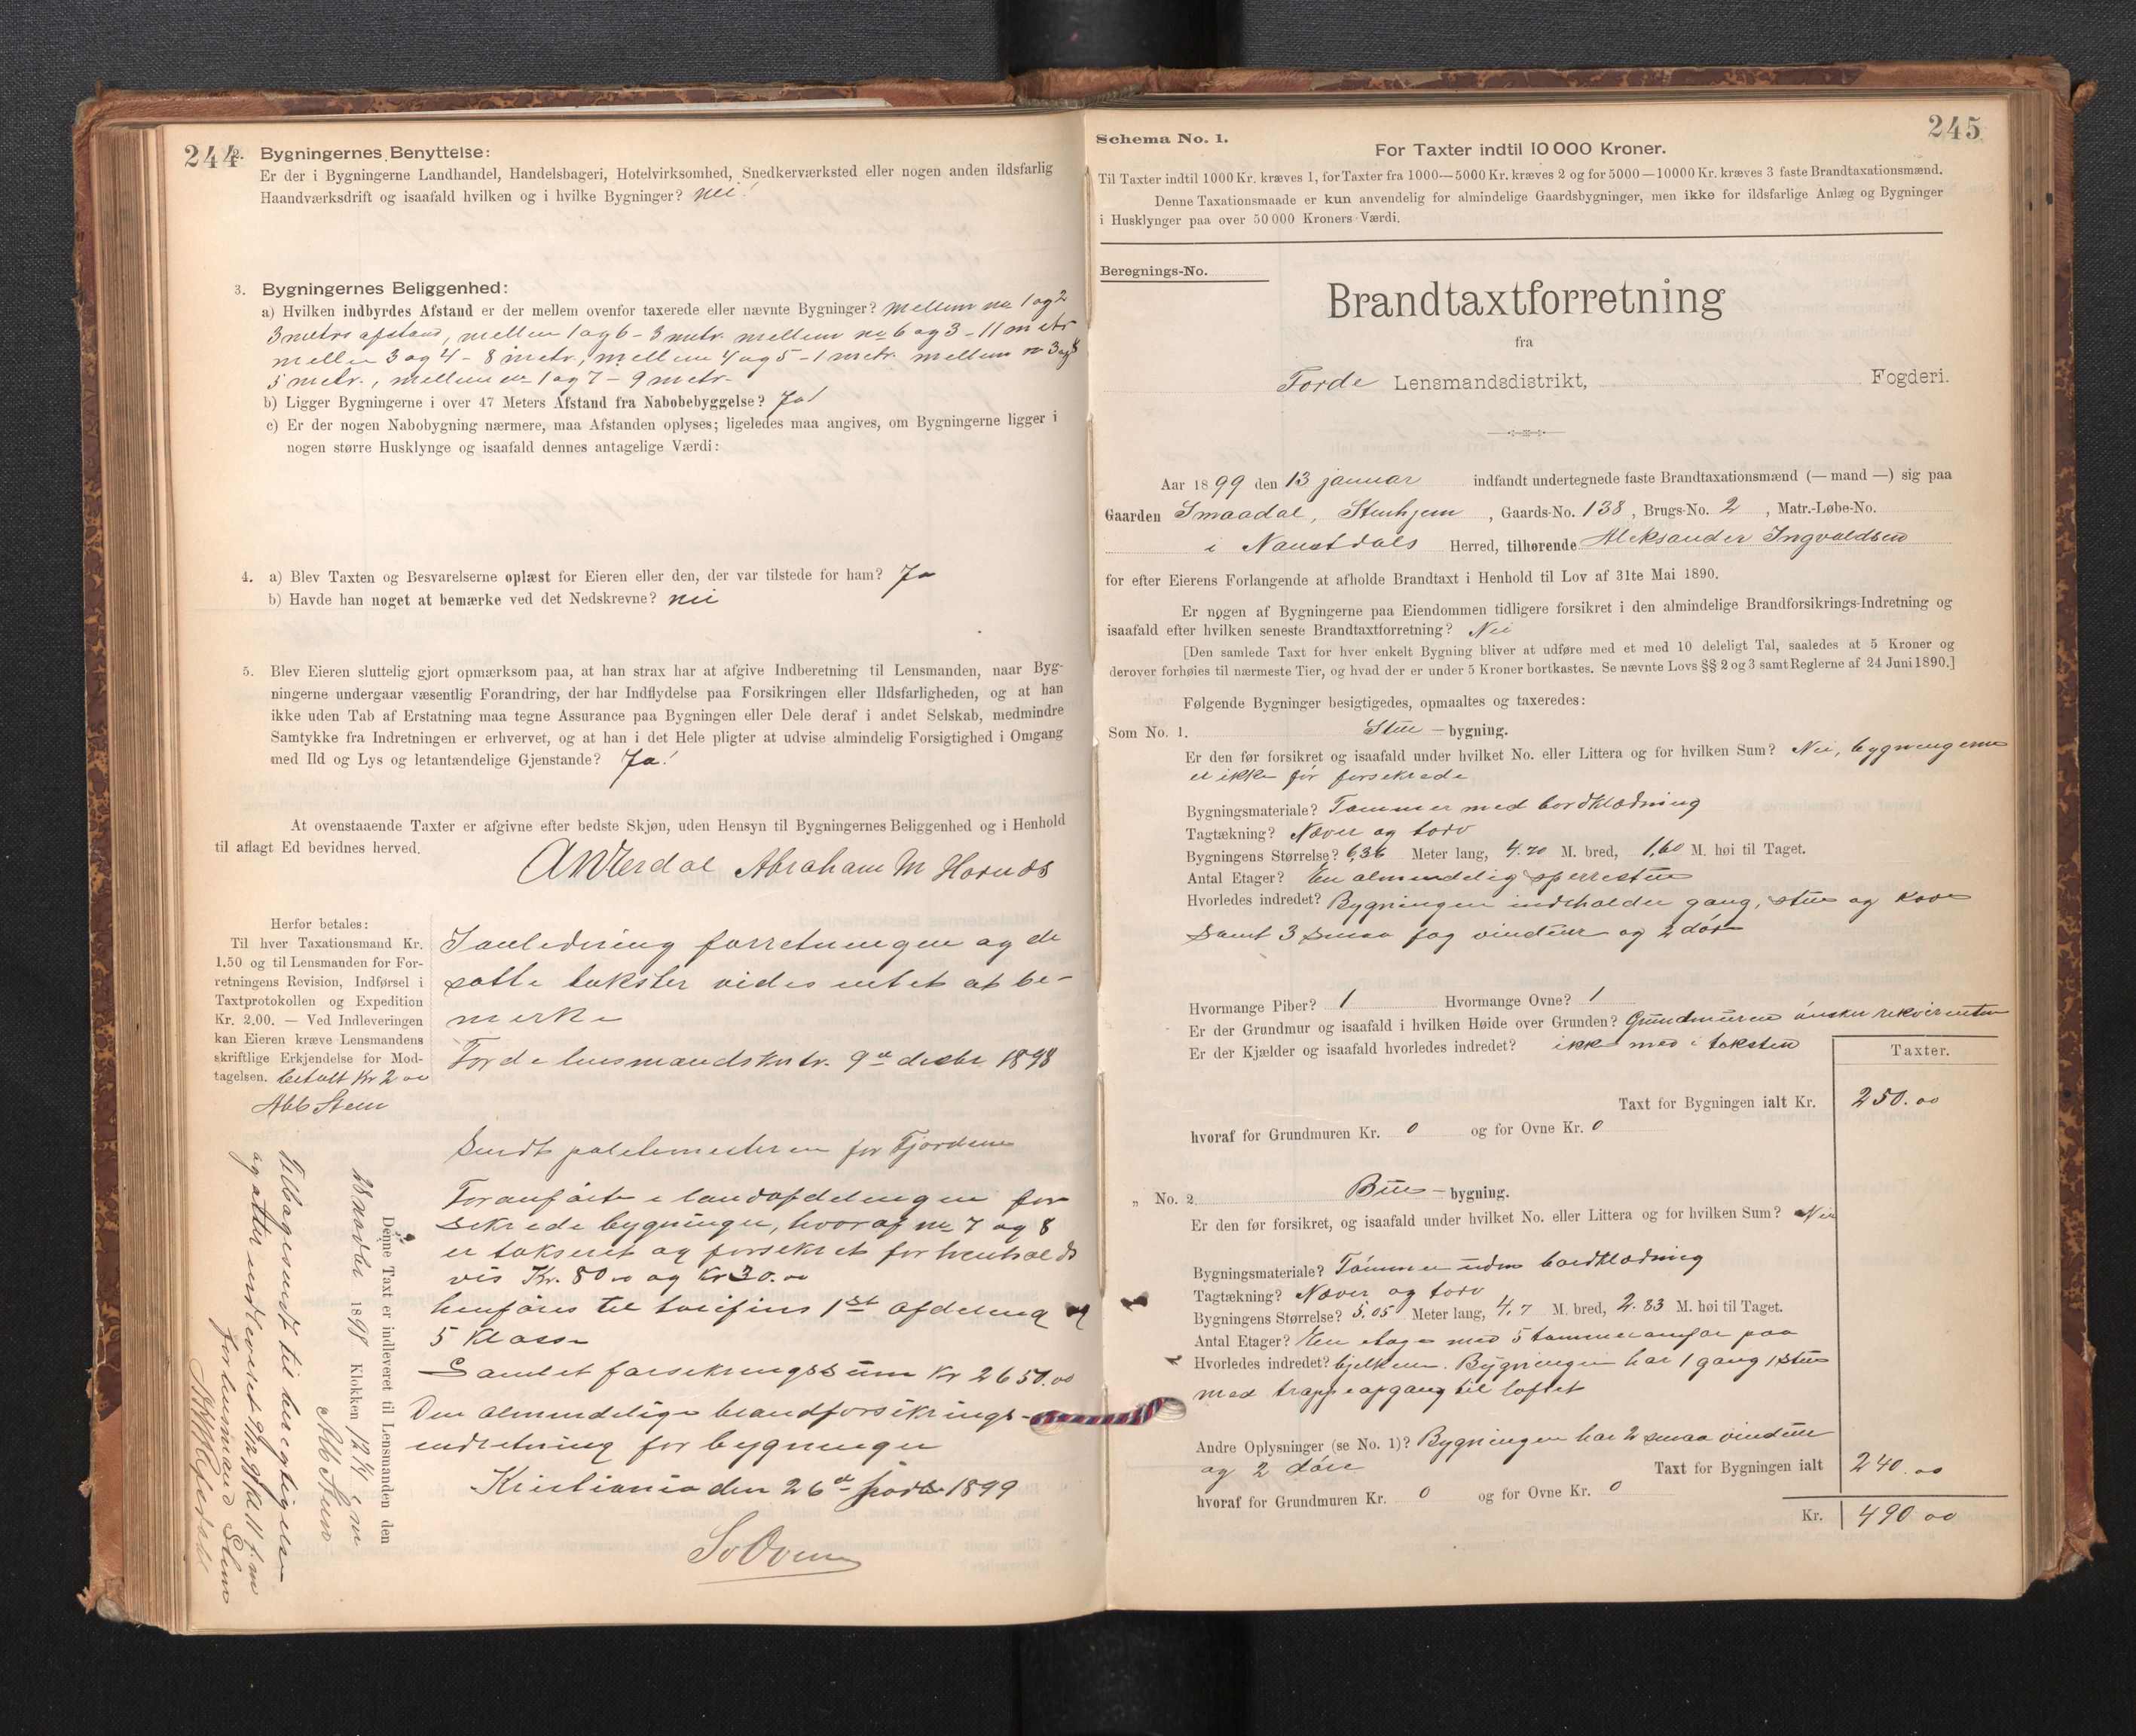 244
2. Bygningernes Benyttelse:
Er der i Bygningerne Landhandel, Handelsbageri, Hotelvirksomhed, Snedkerværksted eller nogen anden ildsfarlig
Haandværksdrift og isaafald hvilken og i hvilke Bygninger? nei!
3. Bygningernes Beliggenhed:
a) Hvilken indbyrdes Afstand er der mellem ovenfor taxerede eller nævnte Bygninger? mellem no 1 og 2
3 metrs afstand, mellem 1 og 6 - 3 metr. mellem no 6 og 3 - 11 metr
mellem 3 og 4 - 8 metr., mellem 4 og 5 - 1 metr. mellem no 3 og 8
5 metr., mellem no 1 og 7 - 9 metr.
b) Ligger Bygningerne i over 47 Meters Afstand fra Nabobebyggelse? Ja!
c) Er der nogen Nabobygning nærmere, maa Afstanden oplyses; ligeledes maa angives, om Bygningerne ligger i
nogen større Husklynge og isaafald dennes antagelige Værdi:
4. a) Blev Taxten og Besvarelserne oplæst for Eieren eller den, der var tilstede for ham? Ja
b) Havde han noget at bemærke ved det Nedskrevne? nei
5. Blev Eieren sluttelig gjort opmærksom paa, at han strax har at afgive Indberetning til Lensmanden, naar Byg-
ningerne undergaar væsentlig Forandring, der har Indflydelse paa Forsikringen eller Ildsfarligheden, og at han
ikke uden Tab af Erstatning maa tegne Assurance paa Bygningen eller Dele deraf i andet Selskab, medmindre
Samtykke fra Indretningen er erhvervet, og at han i det Hele pligter at udvise almindelig Forsigtighed i Omgang
med Ild og Lys og letantændelige Gjenstande? Ja!
At ovenstaaende Taxter er afgivne efter bedste Skjøn, uden Hensyn til Bygningernes Beliggenhed og i Henhold
til aflagt Ed bevidnes herved.
Abraham M Hornds
Herfor betales:
Til hver Taxationsmand Kr.
1.50 og til Lensmanden for For-
retningens Revision, Indførsel i
Taxtprotokollen og Expedition
Kr. 2.00. — Ved Indleveringen
kan Eieren kræve Lensmandens
skriftlige Erkjendelse for Mod-
tagelsen. betalt Kr 2 00
Abb Stein
I anledning forretningen og de
satte takster vides intet at be-
merke
Førde lensmandskntr. 9de decbr. 1898
Sendt politimesteren for Fjordene
Foranførte i landafdelingen for
sikrede bygninger, hvoraf no 7 og 8
er takseret og forsikret for henholds
vis Kr. 80 00 og Kr 30.00
henføres til tarifens 1ste afdeling og
5 Klasse
Samlet forsikringssum Kr 2650.00
Den almindelige brandforsikrings-
indretning for bygninger
Kristiania den 26de 1899
Denne Taxt er indleveret til Lensmanden den
28 novbr 1898 Klokken 12 1/4 e m
Abb Stein
Tilbagesendt til berigtigelse
og atter indleveret 9/12 98 kl 11 f. m
for lensmand Stein
245
Schema No. 1.
For Taxter indtil 10 000 Kroner.
Til Taxter indtil 1000 Kr. kræves 1, for Taxter fra 1000—5000 Kr. kræves 2 og for 5000—10000 Kr. kræves 3 faste Brandtaxationsmænd.
Denne Taxationsmaade er kun anvendelig for almindelige Gaardsbygninger, men ikke for ildsfarlige Anlæg og Bygninger
i Husklynger paa over 50 000 Kroners Værdi.
Beregnings-No.
Brandtaxtforretning
fra
Førde Lensmandsdistrikt, Fogderi.
Aar 1899 den 13 januar indfandt undertegnede faste Brandtaxationsmænd (— mand —) sig paa
Gaarden Smaadal, Stenhjem, Gaards-No. 138, Brugs-No. 2, Matr.-Løbe-No.
i Naustdals Herred, tilhørende Aleksander Ingvaldsen
for efter Eierens Forlangende at afholde Brandtaxt i Henhold til Lov af 31te Mai 1890.
Er nogen af Bygningerne paa Eiendommen tidligere forsikret i den almindelige Brandforsikrings-Indretning og
isaafald efter hvilken seneste Brandtaxtforretning? Nei
[Den samlede Taxt for hver enkelt Bygning bliver at udføre med et med 10 deleligt Tal, saaledes at 5 Kroner og
derover forhøies til nærmeste Tier, og hvad der er under 5 Kroner bortkastes. Se nævnte Lovs §§ 2 og 3 samt Reglerne af 24 Juni 1890.]
Følgende Bygninger besigtigedes, opmaaltes og taxeredes:
Som No. 1. Stue — bygning.
Er den før forsikret og isaafald under hvilket No. eller Littera og for hvilken Sum? Nei, bygningerne
er ikke før forsikrede
Bygningsmateriale? Tømmer med bordklædning
Tagtækning? Næver og torv
Bygningens Størrelse? 6,36 Meter lang, 4.70 M. bred, 1,60 M. høi til Taget.
Antal Etager? En almindelig sperrestue
Hvorledes indredet? Bygningen indeholder gang, stue og kove
samt 3 smaa fag vinduer og 2 døre
Hvormange Piber? 1 Hvormange Ovne? 1
Er der Grundmur og isaafald i hvilken Høide over Grunden? Grundmuren ønsker rekvirenten
Er der Kjælder og isaafald hvorledes indredet? ikke med i taksten
Taxter.
Taxt for Bygningen ialt Kr. 250.00
hvoraf for Grundmuren Kr. 0 og for Ovne Kr. 0
„ No. 2. Bue — bygning.
Er den før forsikret, og isaafald under hvilket No. eller Littera og for hvilken Sum? Nei
Bygningsmateriale? Tømmer uden bordklædning
Tagtækning? Næver og torv
Bygningens Størrelse? 5.05 Meter lang, 4.7 M. bred, 2.83 M. høi til Taget.
Antal Etager? En etage med 5 tømmeromfar paa
Hvorledes indredet? bjelkene. Bygningen har 1 gang 1 stue
med trappeopgang til loftet
Andre Oplysninger (se No. 1)? Bygningen har 2 smaa vinduer
og 2 døre
Taxt for Bygningen ialt 240.00
hvoraf for Grundmuren Kr. 0 og for Ovne Kr. 0
Kr. 490 00